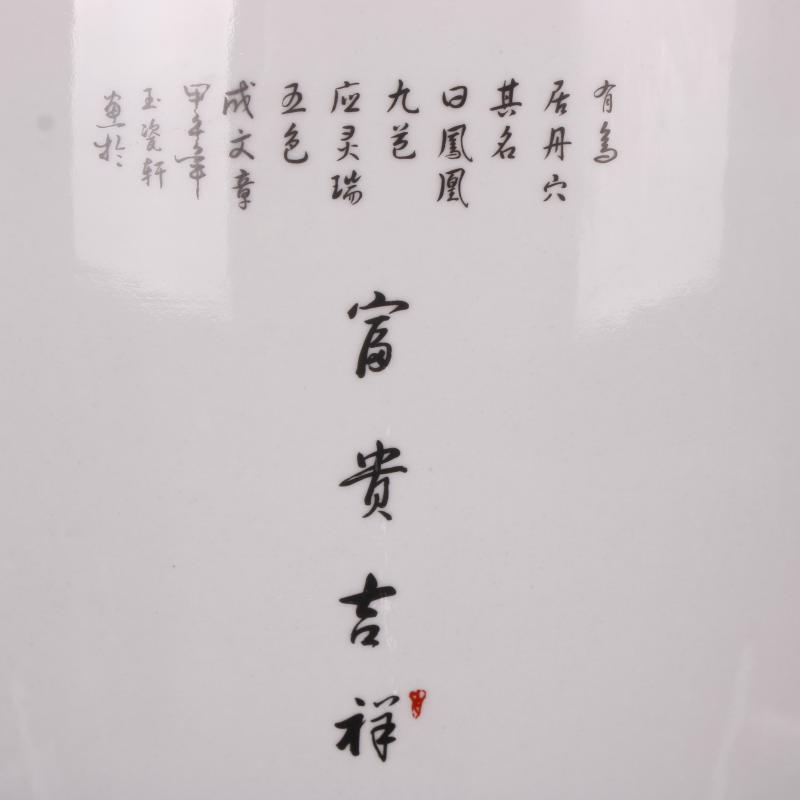 有鳥
居丹穴
其名
曰鳳凰
九苞
应灵瑞
五色
成文章
甲午年
玉瓷轩
畫於
富贵吉祥